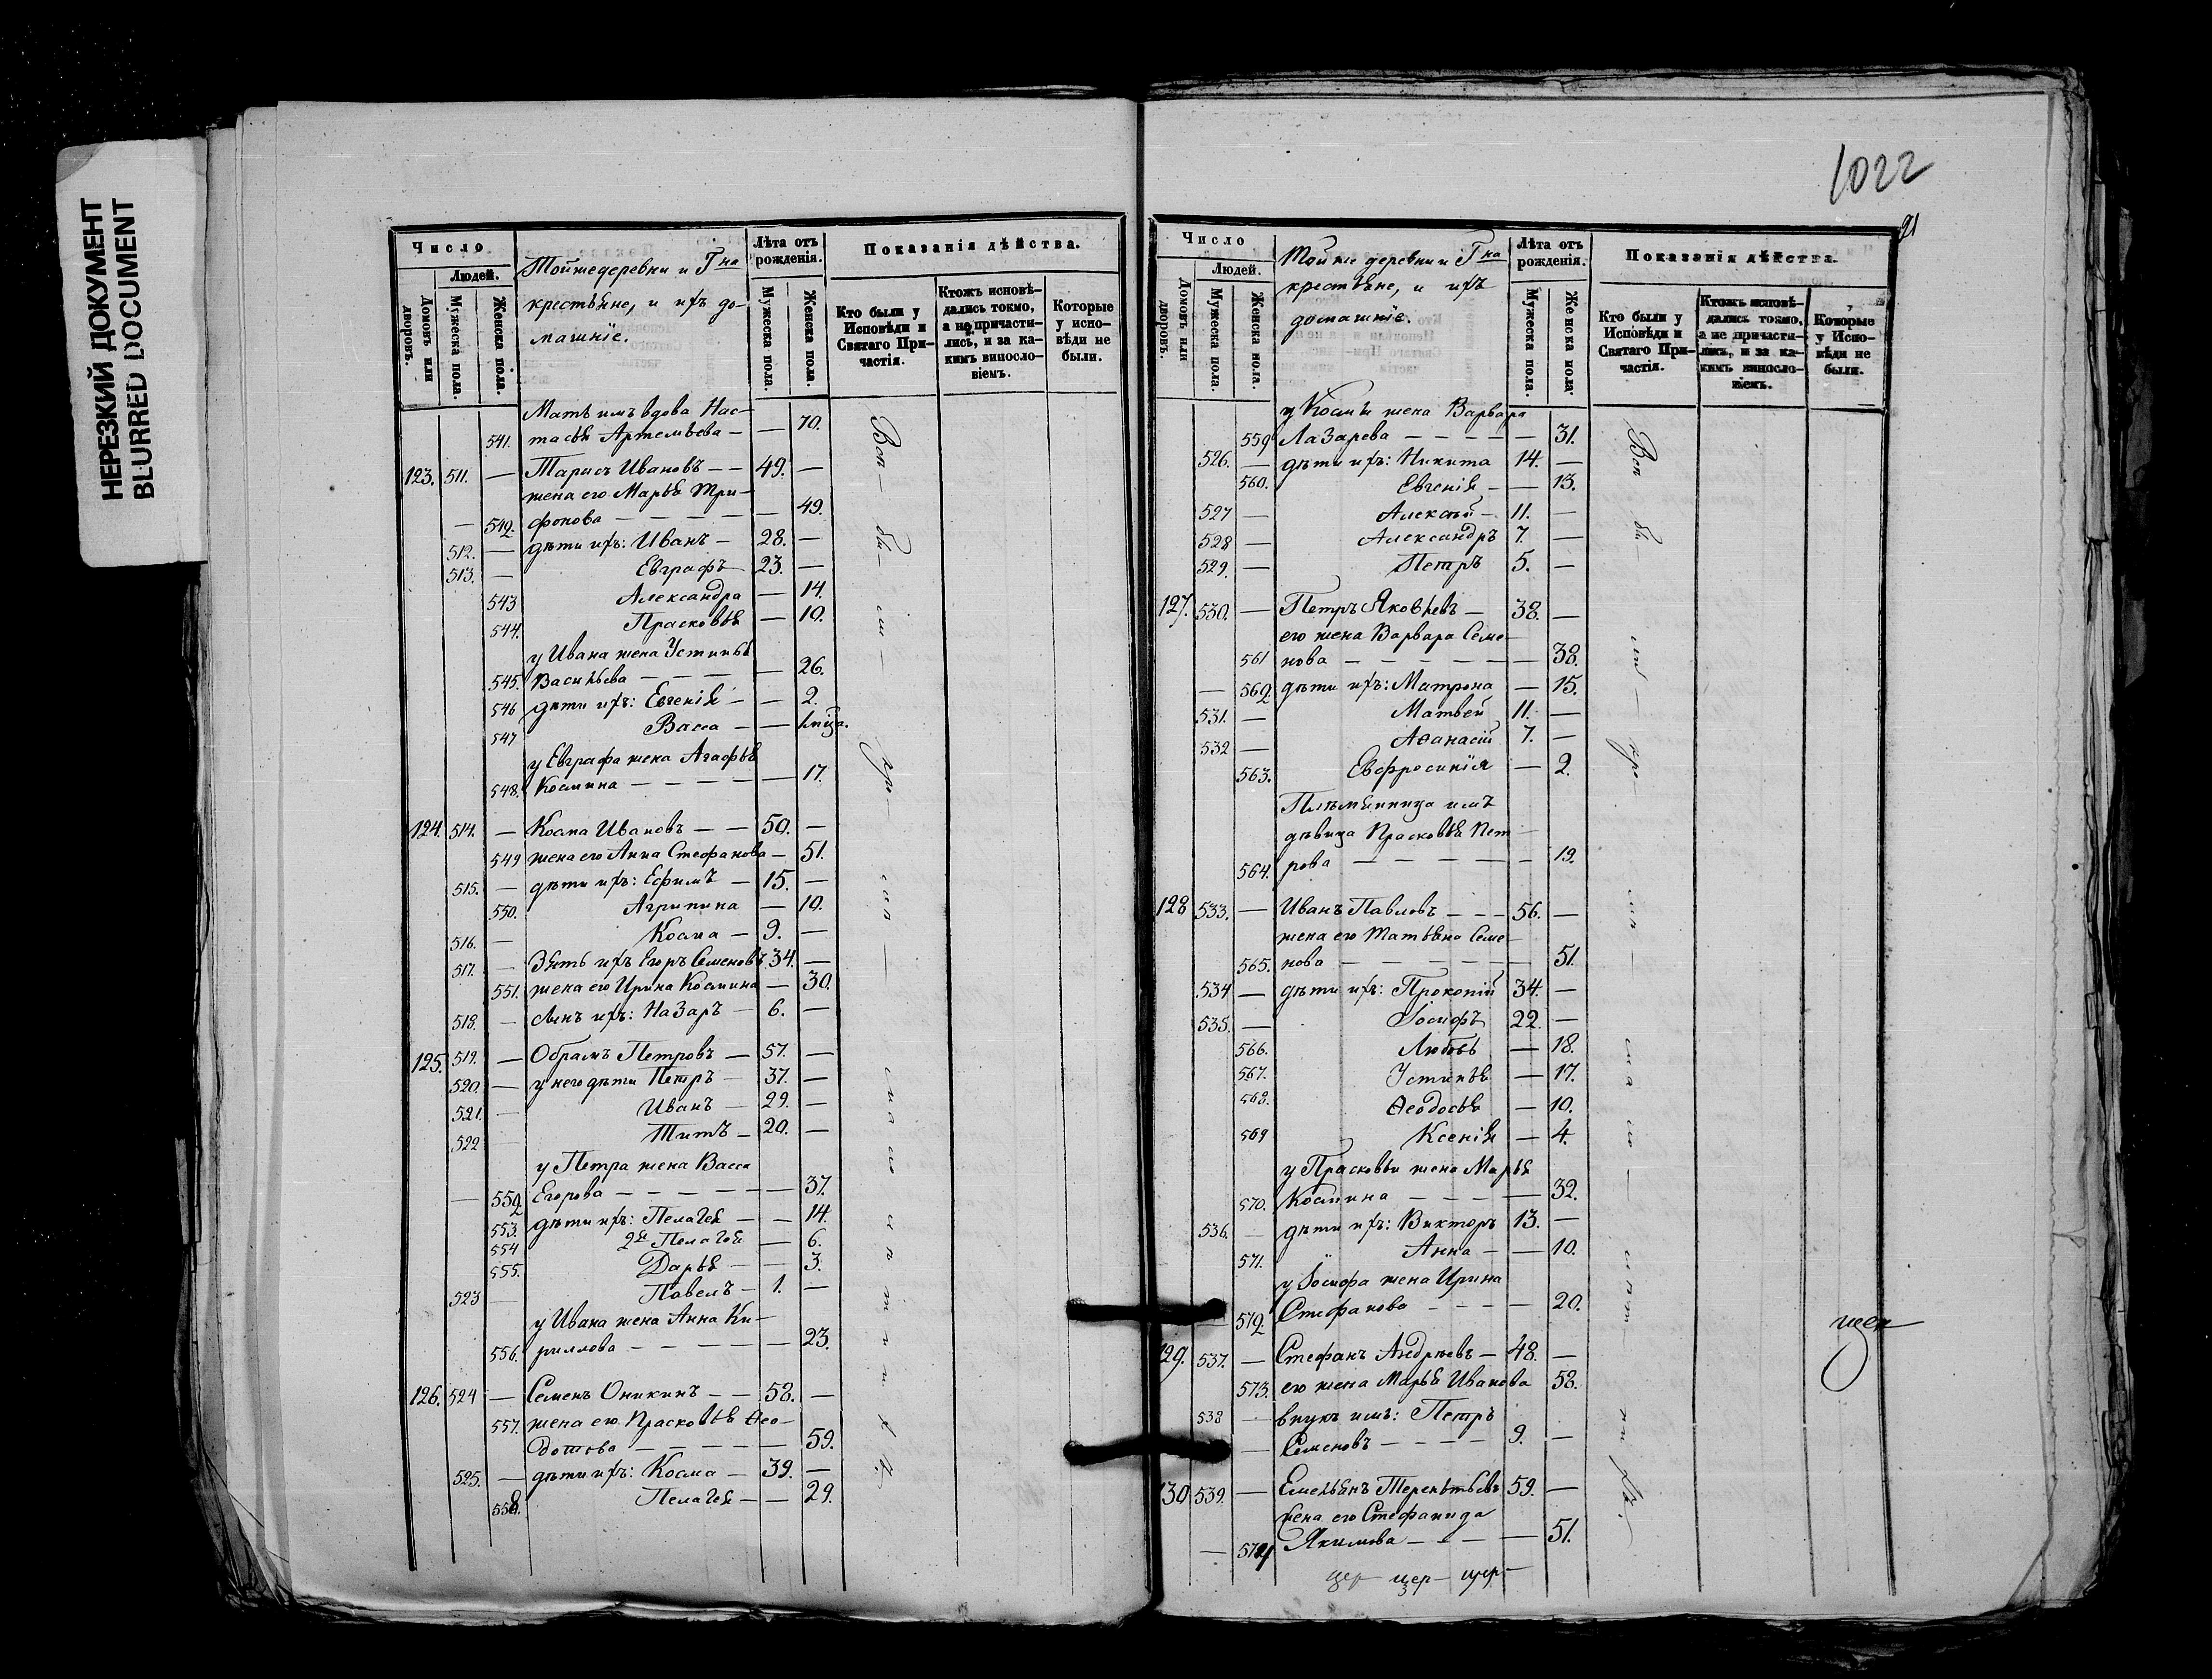 НЕРЕЗКИЙ ДОКУМЕНТ
BLURRED DOCUMENT
1022
91
Число
Людей.
Домовъ или дворовъ.
Мужеска пола.
Женска пола.
Тойже деревни и Гна
крестьяне, и ихъ до-
машніе.
Лѣта отъ рожденія.
Мужеска пола.
Женска пола.
Показанія дѣйства.
Кто были у Исповѣди и Святаго Причастія.
Ктожъ исповѣ-
дались токмо,
а не причасти-
лись, и за ка-
кимъ винословіемъ.
Которые у исповѣди не были.
Мать имъ вдова Нас-
541. тасья Артемьева — — 70.
123. 511. — Тарисъ Ивановъ — — 49. —
жена его Марья Три-
— 542. фонова — — — — — 49.
512. — дѣти ихъ: Иванъ — 28. —
513. — Евграфъ 23. —
543 Александра — 14.
544. Прасковья — 10.
у Ивана жена Устинья
545. Васильева — — — — 26.
546 дѣти ихъ: Евгенія — — 2.
547 Васса — —
у Евграфа жена Агафья
548. Космина — — — — 17.
124. 514. — Косма Ивановъ — — 50. —
549 жена его Анна Стефанова — 51.
515. — дѣти ихъ: Ефимъ — 15. —
550. Агрипина — 10.
516. — Косма — 9. —
517. — Зять ихъ Егоръ Семеновъ 34. —
551. жена его Ирина Космина — 30.
518. — сынъ ихъ: Назаръ — 6. —
125. 519. — Обрамъ Петровъ — 57. —
520. — у него дѣти Петръ — 37. —
521. — Иванъ — 29. —
522 Титъ — 20. —
у Петра жена Васса
— 552. Егорова — — — — — 37.
553. дѣти ихъ: Пелагея — — 14.
554 2я Пелагея — 6.
555. Дарья — — 3.
523 — Павелъ — 1. —
у Ивана жена Анна Ки-
556. риллова — — — — — 23.
126. 524 — Семенъ Оникинъ — — 58. —
557. жена его Прасковья Ѳео-
дотова — — — — — 59.
525. — дѣти ихъ: Косма — 39. —
558. Пелагея — — 29.
Число
Людей.
Домовъ или дворовъ.
Мужеска пола.
Женска пола.
Тойже деревни и Гна
крестьяне, и ихъ
домашніе.
Лѣта отъ рожденія.
Мужеска пола.
Женска пола.
Показанія дѣйства.
Кто были у Исповѣди и Святаго Причастія.
Ктожъ исповѣ-
дались токмо,
а не причасти-
лись, и за ка-
кимъ винословіемъ.
Которые у Исповѣди не были.
у Космы жена Варвара
559 Лазарева — — — — — 31.
526. — дѣти ихъ: Никита 14. —
560. Евгенія — — 13.
527 — Алексѣй — 11. —
528 — Александръ 7. —
529. — Петръ 5. —
127. 530. — Петръ Яковлевъ — 38. —
его жена Варвара Семе-
561 нова — — — — — — 38.
— 562. дѣти ихъ: Матрона — 15.
531. — Матвей 11. —
532 — Аѳанасій 7. —
563. Евфросинія — 2.
Племянница имъ
дѣвица Прасковья Пет-
564. рова — — — — — 19.
128 533. — Иванъ Павловъ — — — 56. —
жена его Татьяна Семе-
565. нова — — — — — — 51.
534 — дѣти ихъ: Прокопій 34. —
535. — Іосифъ 22. —
566. Любовь — 18.
567. Устинья — 17.
568. Ѳеодосья — 10.
569 Ксенія — 4.
у Прасковьи жена Марья
570. Космина — — — — 32.
536. — дѣти ихъ: Викторъ 13. —
571. Анна — — 10.
у Іосифа жена Ирина
— 572. Стефанова — — — — 20.
129. 537. — Стефанъ Андрѣевъ — 48. —
573. его жена Марья Иванова 58.
538 — внукъ имъ: Петръ
— Семеновъ — — — — 9. —
130 539. — Емельянъ Терентьевъ 59. —
жена его Стефанида
— 574 Якимова — — — — 51.